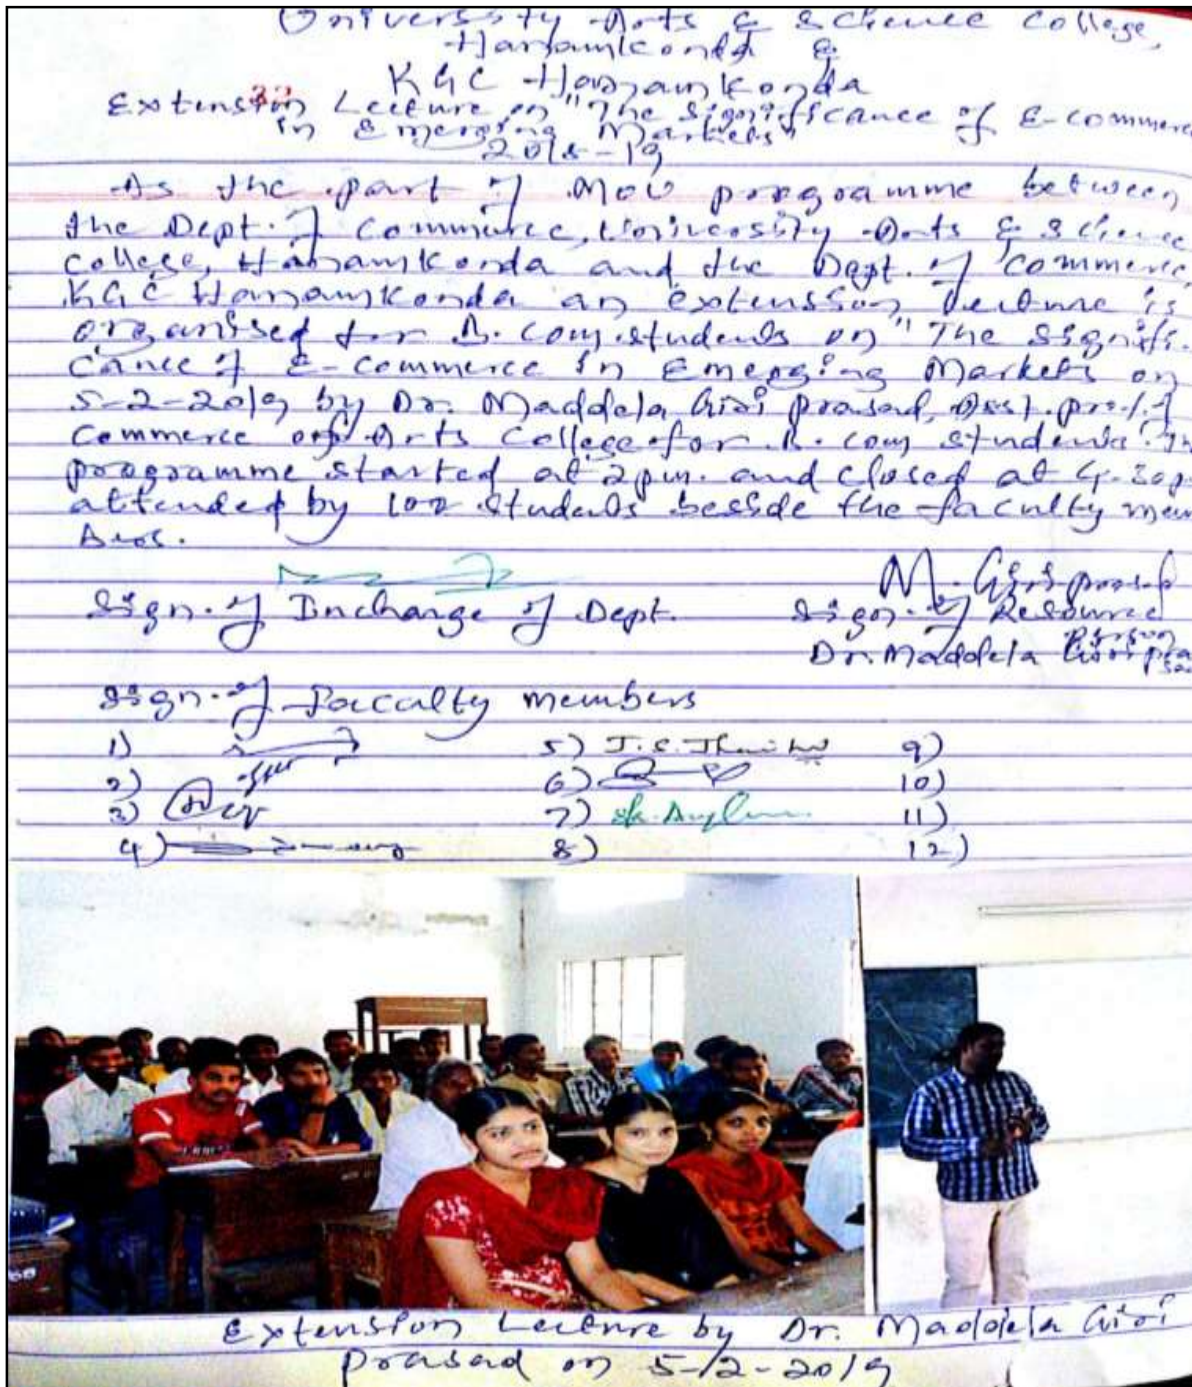 University Arts & Science College,
Hanamkonda &
KGC Hanamkonda
Extension Lecture on "The Significance of E-commerce
in Emerging Markets"
2018-19
As the part of MOU programme between
the Dept. of Commerce, University Arts & Science
College, Hanamkonda and the Dept. of Commerce,
KGC Hanamkonda an extension lecture is
organised for B. Com. students on "The Signifi-
cance of E-Commerce in Emerging Markets on
5-2-2019 by Dr. Maddela Giri prasad, Asst. prof. of
Commerce Arts College for B. Com students. The
programme started at 2pm. and closed at 4-30p
attended by 102 students beside the faculty mem
bers.
M. Giri prasad
Sign. of Incharge of Dept. Sign. of Resource
person
Dr. Maddela Giri pra
sad
Sign. of Faccalty members
1) 5) 9)
2) 6) 10)
3) 7) 11)
4) 8) 12)
Extension Lecture by Dr. Maddela Giri
prasad on 5-2-2019